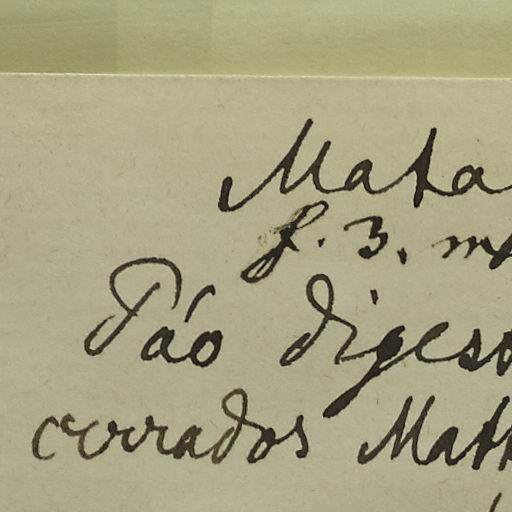 Mata
f. 3. m
Páo digest
cerrados Matt